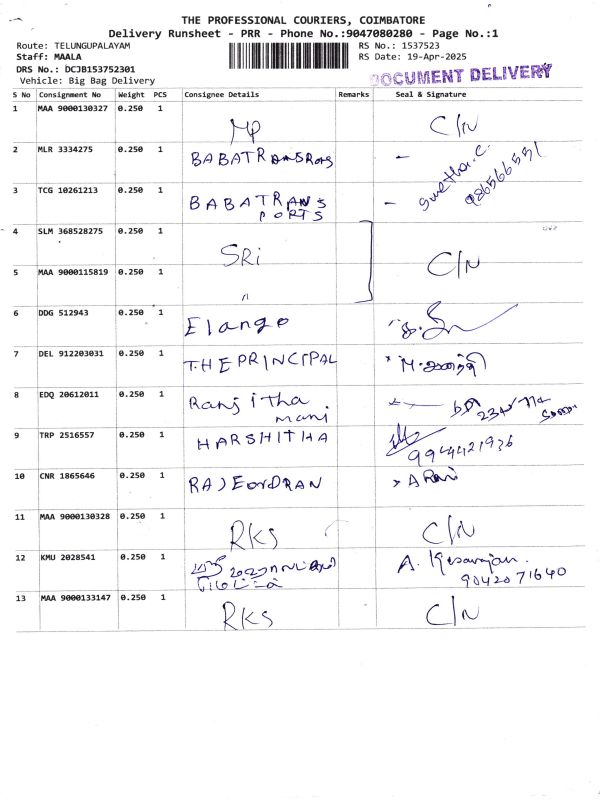 THE PROFESSIONAL COURIERS, COIMBATORE
Delivery Runsheet - PRR - Phone No.:9047080280 - Page No.:1
Route: TELUNGUPALAYAM RS No.: 1537523
Staff: MAALA RS Date: 19-Apr-2025
DRS No.: DCJB153752301
Vehicle: Big Bag Delivery DOCUMENT DELIVERY
S No Consignment No Weight PCS Consignee Details Remarks Seal & Signature
1 MAA 9000130327 0.250 1 MP C/N
2 MLR 3334275 0.250 1 BABATRANSPORTS -
3 TCG 10261213 0.250 1 BABATRANS -
PORTS
4 SLM 368528275 0.250 1 SRi C/N
5 MAA 9000115819 0.250 1 "
6 DDG 512943 0.250 1 Elango
7 DEL 912203031 0.250 1 T.HEPRINCIPAL
8 EDQ 20612011 0.250 1 Ranjitha
mani
9 TRP 2516557 0.250 1 HARSHITHA 9944421936
10 CNR 1865646 0.250 1 A Rani
11 MAA 9000130328 0.250 1 RKS C/N
12 KMU 2028541 0.250 1 A.
9042071640
13 MAA 9000133147 0.250 1 RKS C/N